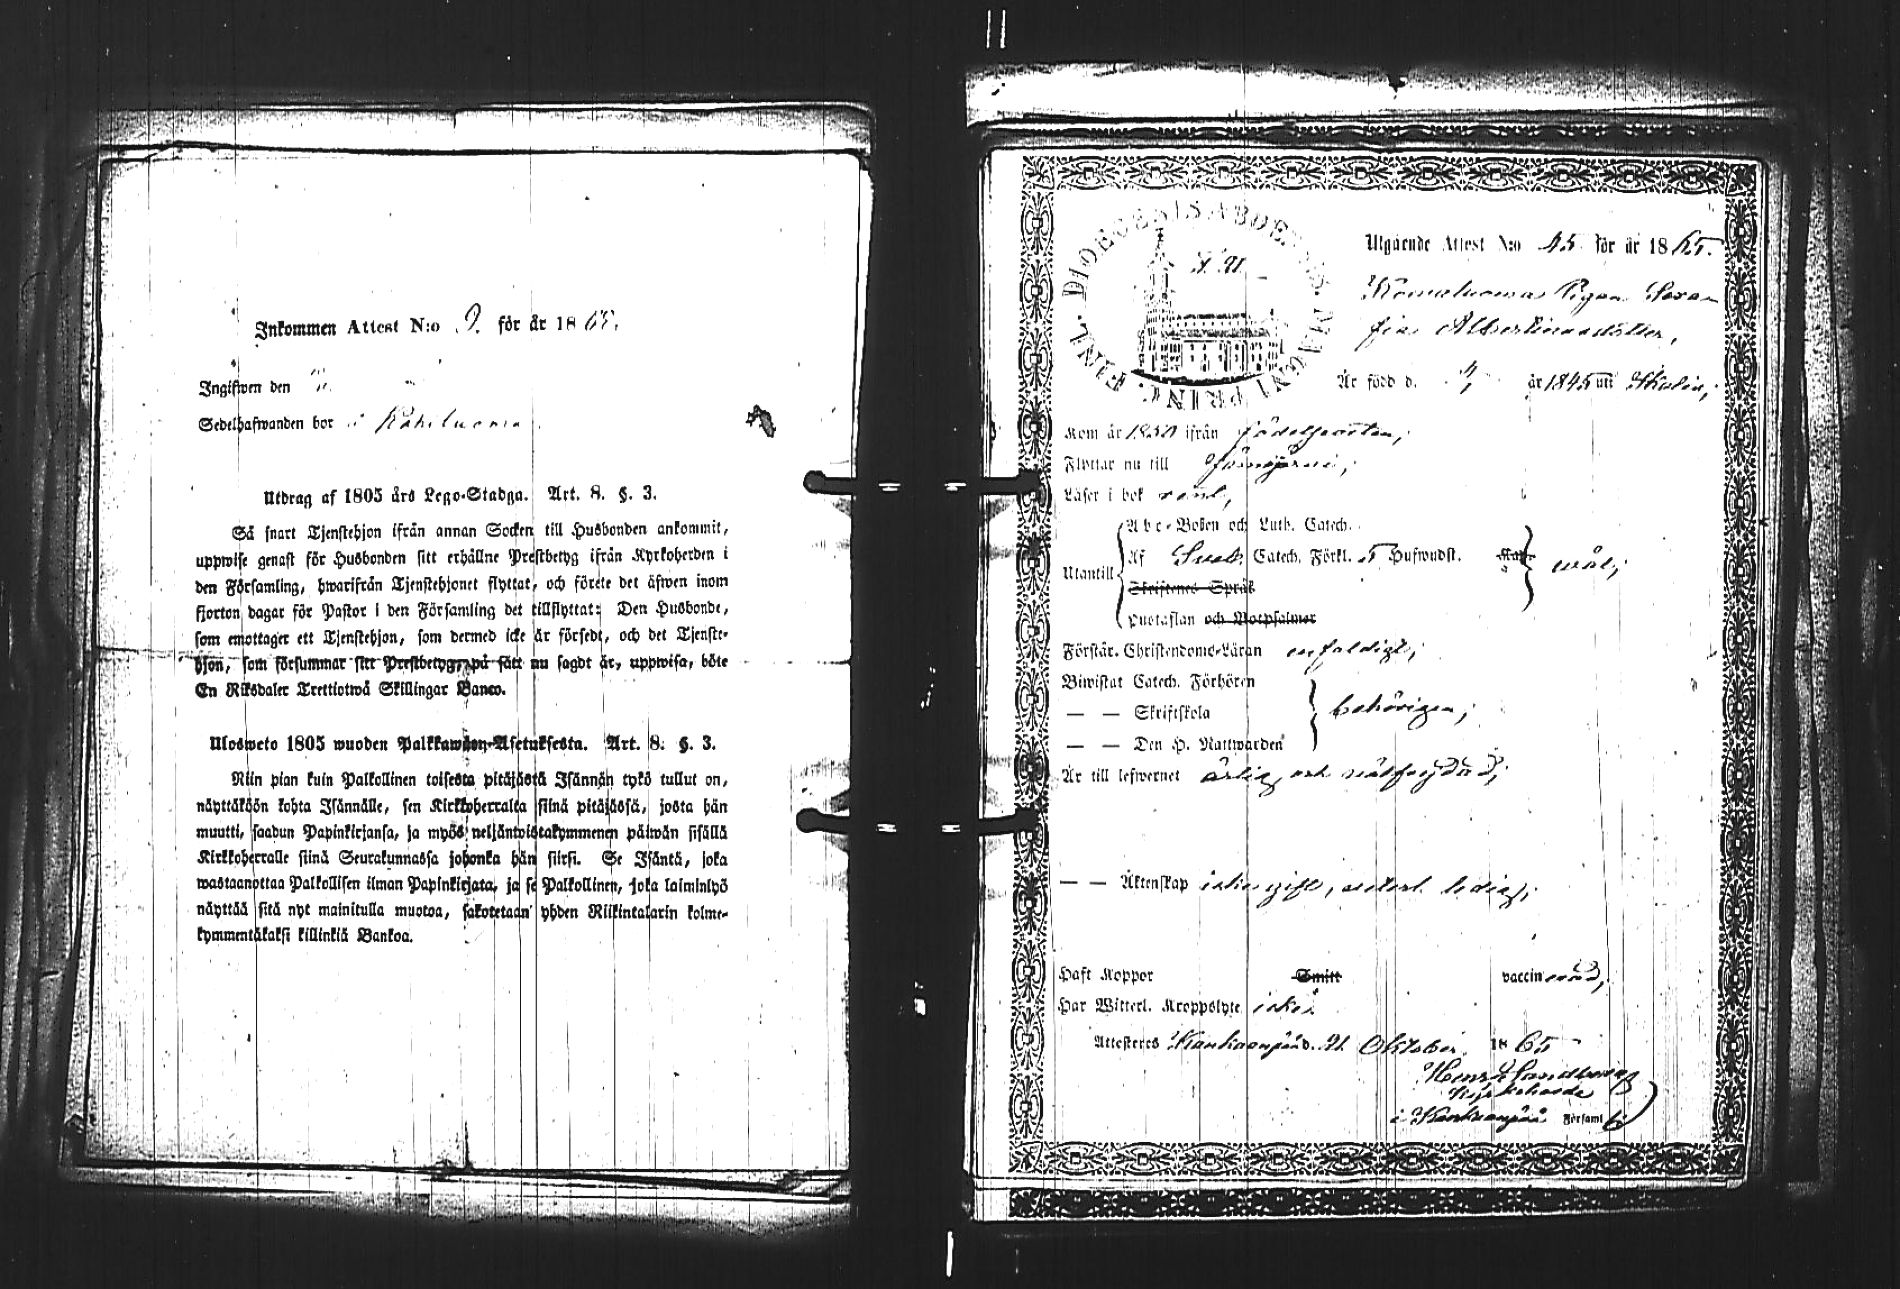 Inkommen Attest N:o 9. för år 18 65.
Ingifwen den
Sedelhafwanden bor i Kohiluoma.
Utdrag af 1805 års Lego-Stadga. Art. 8. §. 3.
Så snart Tjenstehjon ifrån annan Socken till Husbonden ankommit,
uppwise genast för Husbonden sitt erhållne Prestbetyg ifrån Kyrkoherden i
den Församling, hwarifrån Tjenstehjonet flyttat, och förete det äfwen inom
fjorton dagar för Pastor i den Församling det tillflyttat: Den Husbonde,
som emottager ett Tjenstehjon, som dermed icke är försedt, och det Tjenste-
hjon, som försummar sitt Prestbetyg, på sätt nu sagdt är, uppwisa, böte
En Riksdaler Trettiotwå Skillingar Banco.
Ulosweto 1805 wuoden Palkkawäen-Asetuksesta. Art. 8. §. 3.
Niin pian kuin Palkollinen toisesta pitäjästä Isännän tykö tullut on,
näyttäköön kohta Isännälle, sen Kirkkoherralta siinä pitäjässä, josta hän
muutti, saadun Papinkirjansa, ja myös neljäntoistakymmenen päiwän sisällä
Kirkkoherralle siinä Seurakunnassa johonka hän siirsi. Se Isäntä, joka
wastaanottaa Palkollisen ilman Papinkirjata, ja se Palkollinen, joka laiminlyö
näyttää sitä nyt mainitulla muotoa, sakotetaan yhden Riikintalarin kolme-
kymmentäkaksi killinkiä Bankoa.
FINL. DIOECESIS ABOENSIS MAGNI PRINC.
Utgående Attest N:o 45 för år 18 65.
Pigan Sera-
fia Albertinadotter,
Är född d. 4/1 år 1845 uti Skulin,
Kom år 1850 ifrån födelseorten,
Flyttar nu till Jämijärvi,
Läser i bok rent,
Utantill
A b c-Boken och Luth. Catech.
Af Sveb. Catech. Förkl. 5 Hufwudst. wäl,
Skriftenes Språk
Hustaflan och Botpsalmer
Förstår Christendoms-Läran enfaldigt,
Biwistat Catech. Förhören
— — Skriftskola behörigen,
— — Den H. Nattwarden
Är till lefwernet ärlig och
— — Äktenskap icke gift, ledig,
Haft Koppor Smitt vaccinerad,
Har Witterl. Kroppslyte icke.
Attesteres Kankaanpää d. 21 Oktober 18 65
Henr. Sandberg
Kyrkoherde
i Kankaanpää Församl.